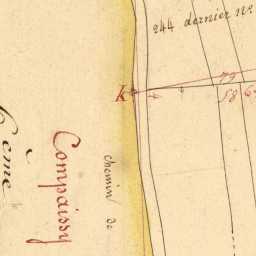 244 dernier No.
K
79
58
chemin de
Compaissy
eme